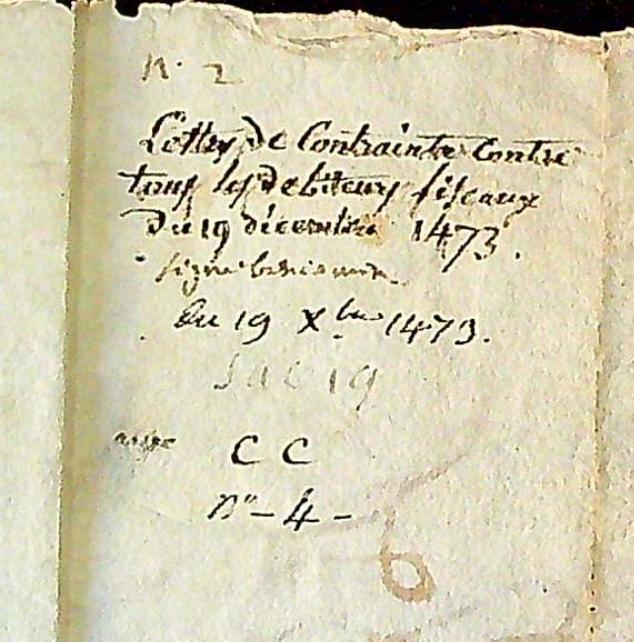 n. 2
Lettres de Contrainte Contre
tous les debiteurs fiscaux
Du 19 décembre 1473.
signé
Du 19 Xbre 1473.
Sac 19
CC
n° - 4 -